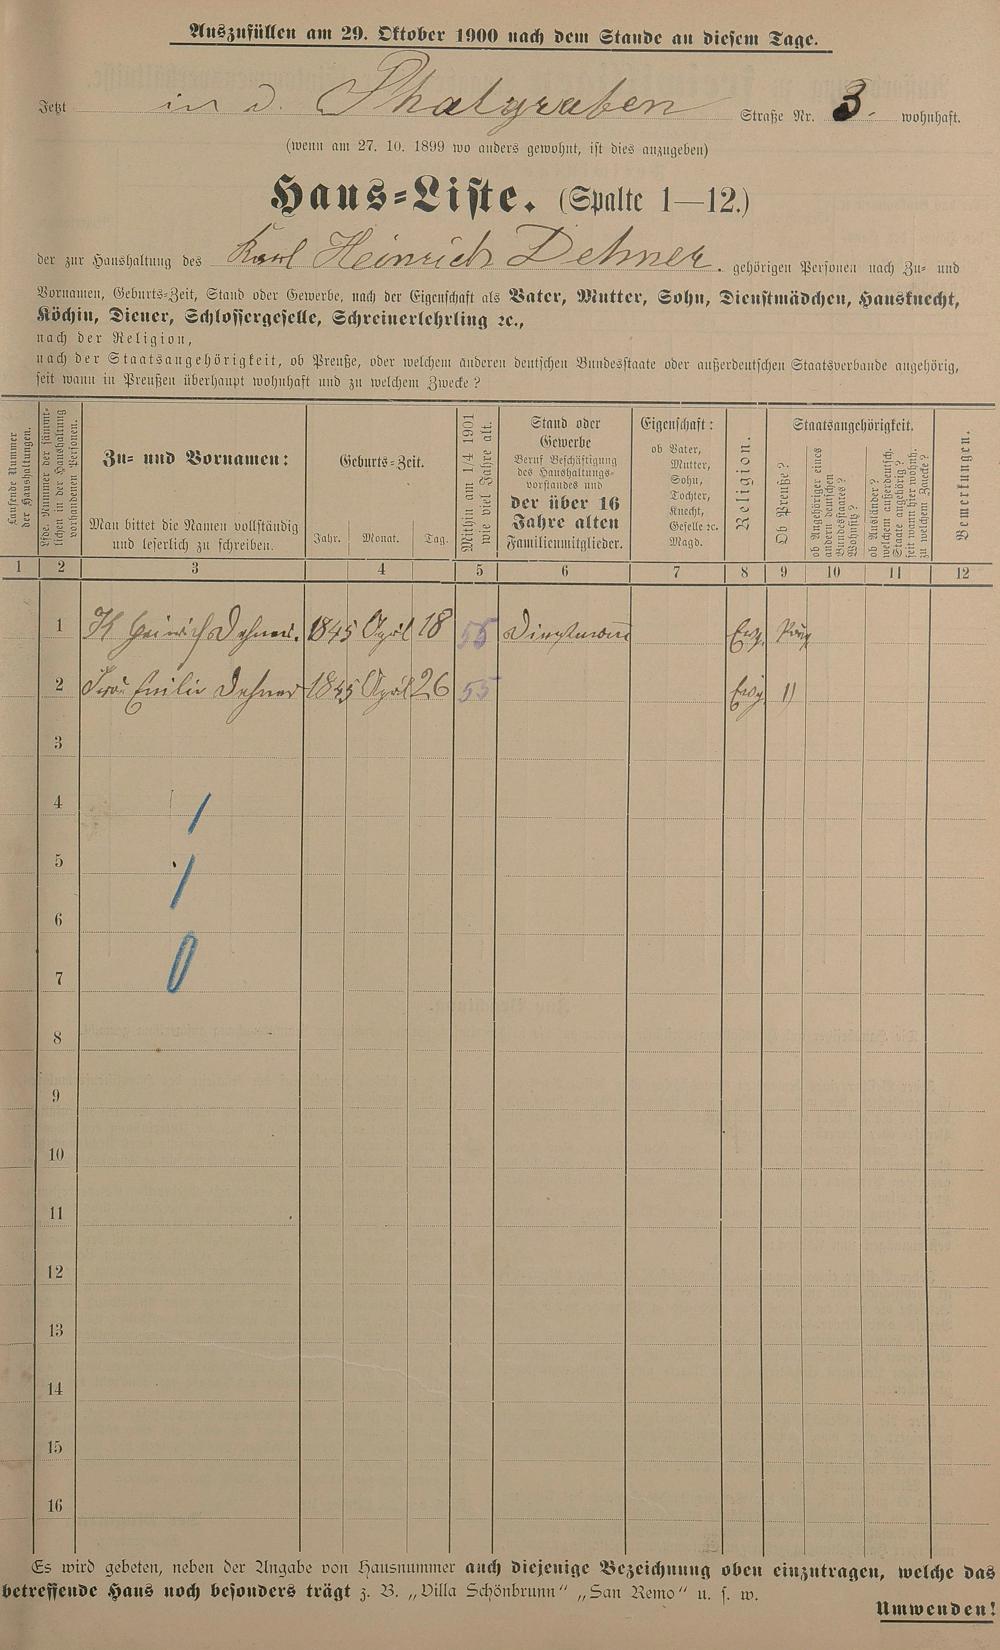 Auszufüllen am 29. Oktober 1900 nach dem Stande an diesem Tage.
Jetzt in d. Thalgraben Straße Nr. 3. wohnhaft.
(wenn am 27. 10. 1899 wo anders gewohnt, ist dies anzugeben)
Haus-Liste. (Spalte 1—12.)
der zur Haushaltung des Karl Heinrich Dehner. gehörigen Personen nach Zu- und
Vornamen, Geburts-Zeit, Stand oder Gewerbe, nach der Eigenschaft als Vater, Mutter, Sohn, Dienstmädchen, Hausknecht,
Köchin, Diener, Schlossergeselle, Schreinerlehrling ꝛc.,
nach der Religion,
nach der Staatsangehörigkeit, ob Preuße, oder welchem anderen deutschen Bundesstaate oder außerdeutschen Staatsverbande angehörig,
seit wann in Preußen überhaupt wohnhaft und zu welchem Zwecke?
Laufende Nummer
der Haushaltungen.
Lfde. Nummer der sämmt-
lichen in der Haushaltung
vorhandenen Personen.
Zu- und Vornamen:
Man bittet die Namen vollständig
und leserlich zu schreiben.
Geburts-Zeit.
Jahr. Monat. Tag.
Mithin am 1/4 1901
wie viel Jahre alt.
Stand oder
Gewerbe
Beruf Beschäftigung
des Haushaltungs-
vorstandes und
der über 16
Jahre alten
Familienmitglieder.
Eigenschaft:
ob Vater,
Mutter,
Sohn,
Tochter,
Knecht,
Geselle ꝛc.
Magd.
Religion.
Staatsangehörigkeit.
Ob Preuße?
ob Angehöriger eines
anderen deutschen
Bundesstaates?
Wohnsitz?
ob Ausländer?
welchem außerdeutsch.
Staate angehörig?
seit wann hier wohnh.
zu welchem Zwecke?
Bemerkungen.
1 2 3 4 5 6 7 8 9 10 11 12
1 K Heinrich Dehner. 1845 April 18 55 Dienstmann Evg. Preuß
2 Frau Emilie Dehner 1845 April 26 55 Evg. "
3
4 /
5 /
6
7 0
8
9
10
11
12
13
14
15
16
Es wird gebeten, neben der Angabe von Hausnummer auch diejenige Bezeichnung oben einzutragen, welche das
betreffende Haus noch besonders trägt z. B. „Villa Schönbrunn“ „San Remo“ u. s. w.
Umwenden!